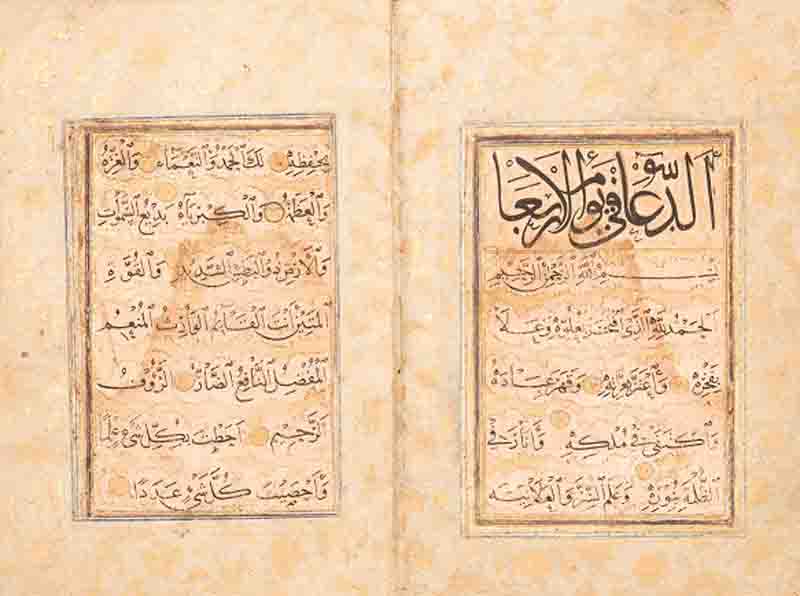 الدعاء في يوم الاربعا
بسم الله الرحمن الرحيم
الحمد لله الذي احتجب بعلوه وعلا
بفخره واعتز بعزته وقهر عباده
واكتفى في ملكه وانار في
الظلمة بنوره وعلم السر والعلانية
بحفظه لك الحمد والنعماء والعزة
والعظمة والكبرياء بديع السموات
والارض ذو البطش الشديد والقوة
المتين انت القائم القادر المنعم
المفضل النافع الضار الرؤوف
الرحيم احطت بكل شيء علما
واحصيت كل شيء عددا